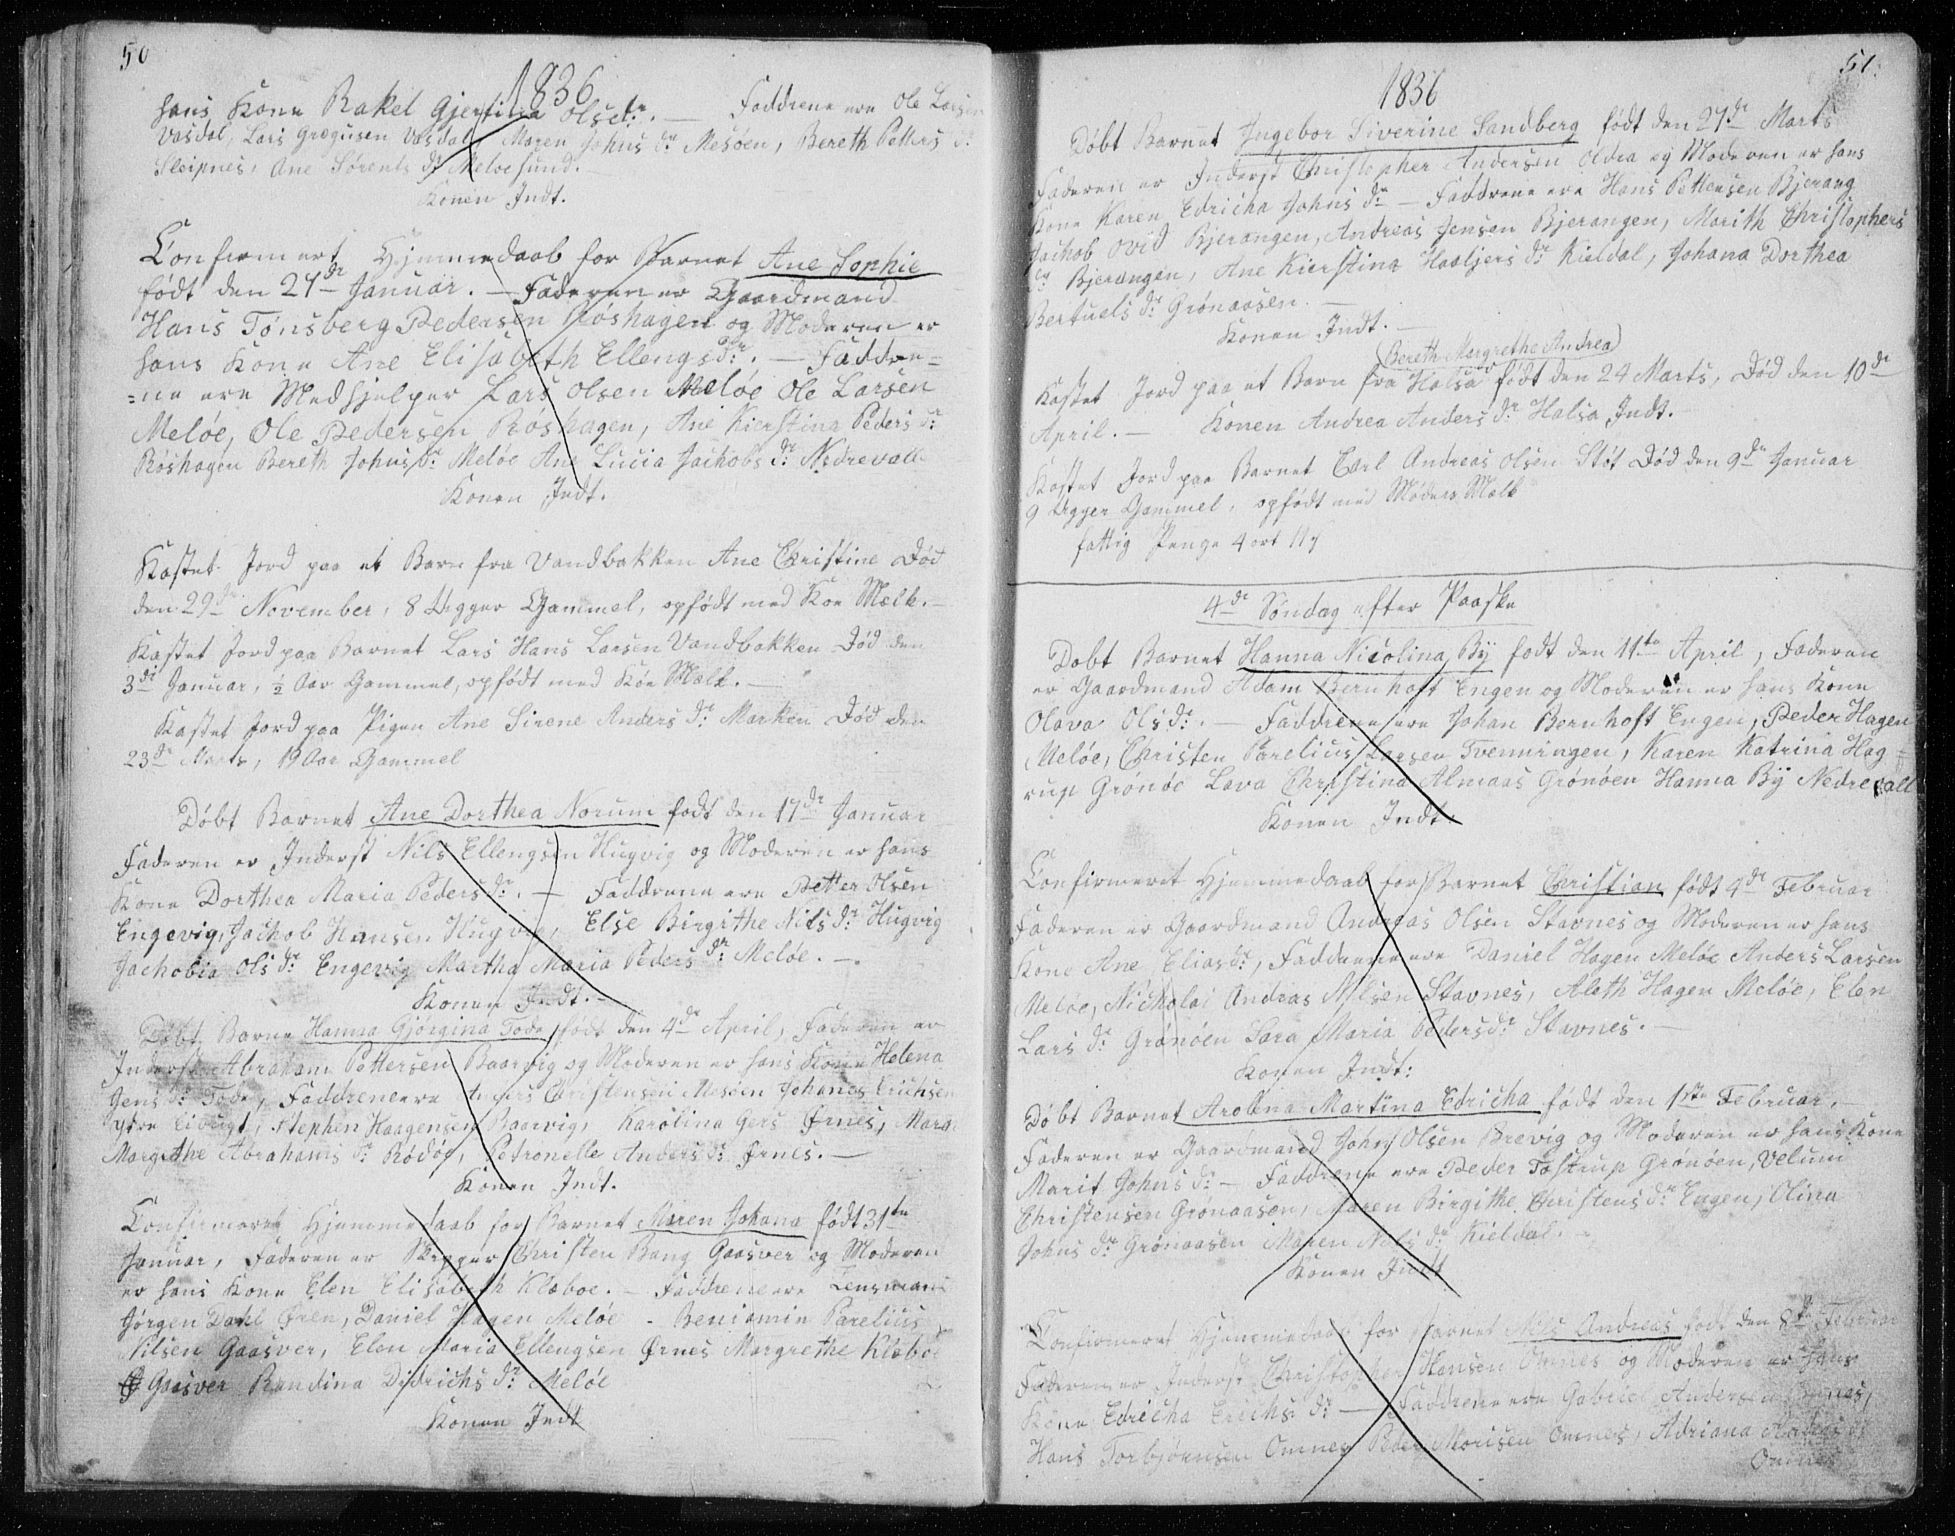 50
1836
hans Kone Rakel Gjertina Olsdr. — Faddrene ere Ole Larsen
Vasdal, Lars Gregusen Vasdal, Maren Johns dr Mesøen, Bereth Petters dr
Sleipnes, Ane Sørents dr Meløesund.
Konen Indt.
Confirmert Hjemmedaab for Barnet Ane Sophie
født den 27de Januar. — Faderen er Gaardmand
Hans Tønsberg Pedersen Røshagen og Moderen er
hans Kone Ane Elisabeth Ellengsdr. — Faddre=
=ne ere Medhjelper Lars Olsen Meløe Ole Larsen
Meløe, Ole Pedersen Røshagen, Ane Kierstina Peders dr
Røshagen Bereth Johns dr Meløe Ane Lucia Jachobs dr Nedrevall
Konen Indt.
Kastet Jord paa et Barn fra Vandbakken Ane Christine Død
den 29de November, 8 Uger Gammel, opfødt med Koe Mælk.
Kastet Jord paa Barnet Lars Hans Larsen Vandbakken Død den
3de Januar, ½ Aar Gammel, opfødt med Koe Mælk. —
Kastet Jord paa Pigen Ane Sirene Anders dr Marken Død den
23de Marts, 19 Aar Gammel
Døbt Barnet Ane Dorthea Norum født den 17de Januar
Faderen er Inderst Nils Ellengsen Hugvig og Moderen er hans
Kone Dorthea Maria Peders dr. — Faddrene ere Petter Olsen
Engevig, Jachob Hansen Hugvig, Else Birgithe Nils dr Hugvig
Jachobia Ols dr Engevig Martha Maria Peders dr Meløe. —
Konen Indt. —
Døbt Barne Hanna Gjørgina Tode født den 4de April, Faderen er
Inderst Abraham Pettersen Baarvig og Moderen er hans Kone Helena
Jens dr Tode, Faddrene ere Anders Christensen Mesøen Johanes Erichsen
Stephen Haagensen Baarvig, Karolina Gers Ørnes,
Margrethe Abrahams dr Rødøe, Petronelle Anders dr Ørnes. —
Konen Indt.
Confirmeret Hjemmedaab for Barnet Maren Johana født 31te
Januar, Faderen er Skipper Christen Bang Gaasver og Moderen
er hans Kone Elen Elisabeth Klæboe. — Faddrene ere Lensmand
Jørgen Dahl Øren, Daniel Hagen Meløe - Beniamin Parelius
Nilsen Gaasver, Elen Maria Ellengsen Ørnes Margrethe Klæboe
Gaasver Randina Didrichs dr Meløe
Konen Indt
51.
1836
Døbt Barnet Ingebor Siverine Sandberg født den 27de Marts
Faderen er Inderst Christopher Andersen Oldra og Moderen er hans
Kone Karen Edricha Johns dr — Faddrene ere Hans Pettersen Bjerang
Jachob Ovid Bjerangen, Andreas Jensen Bjerangen, Marith Christophers
dr Bjerangen, Ane Kierstina Haaljers dr Kieldal, Johana Dorthea
Bertuels dr Grønaasen. —
Konen Indt. —
(Bereth Margrethe Andrea)
Kastet Jord paa et Barn fra Halsa født den 24 Marts, Død den 10de
April. — Konen Andrea Anders dr Halsa Indt.
Kastet Jord paa Barnet Carl Andreas Olsen Støt Død den 9de Januar
9 Uger Gammel, opfødt med Moders Mælk
fattig Penge 4 ort 11 s
4de Søndag efter Paaske
Døbt Barnet Hanna Nicolina By født den 11te April, Faderen
er Gaardmand Adam Bernhoft Engen og Moderen er hans Kone
Olava Olsdr. — Faddrene ere Johan Bernhoft Engen, Peder Hagen
Meløe, Christen Parelius Larsen Tvenningen, Karen Katrina Hag=
rup Grønøe Lava Christina Almaas Grønøen Hanna By Nedrevall
Konen Indt.
Confirmeret Hjemmedaab for Barnet Christian født 4de Februar
Faderen er Gaardmand Andreas Olsen Stavnes og Moderen er hans
Kone Ane Eliasdr, Faddrene ere Daniel Hagen Meløe Anders Larsen
Meløe, Nicholai Andras Nilsen Stavnes, Aleth Hagen Meløe, Elen
Lars dr Grønøen Sara Maria Pedersdr Stavnes. —
Konen Indt:
Døbt Barnet Arolena Martina Edricha født den 1ste Februar. —
Faderen er Gaardmand John Olsen Brevig og Moderen er hans Kone
Marit Johns dr — Faddrene ere Peder Tostrup Grønøen, Velum
Christensen Grønaasen, Maren Birgithe Christens dr Engen, Olina
Johns dr Grønaasen Maren Nils dr Kieldal. —
Konen Indt
Confirmeret Hjemmedaab for Barnet Nils Andreas født den 8de Februar
Faderen er Inderst Christopher Hansen Omnes og Moderen er hans
Kone Edricha Erichs dr — Faddrene ere Gabriel Andersen
Hans Torbjørnsen Omnes Peder Morisen Omnes, Adriana Anders dr
Omnes